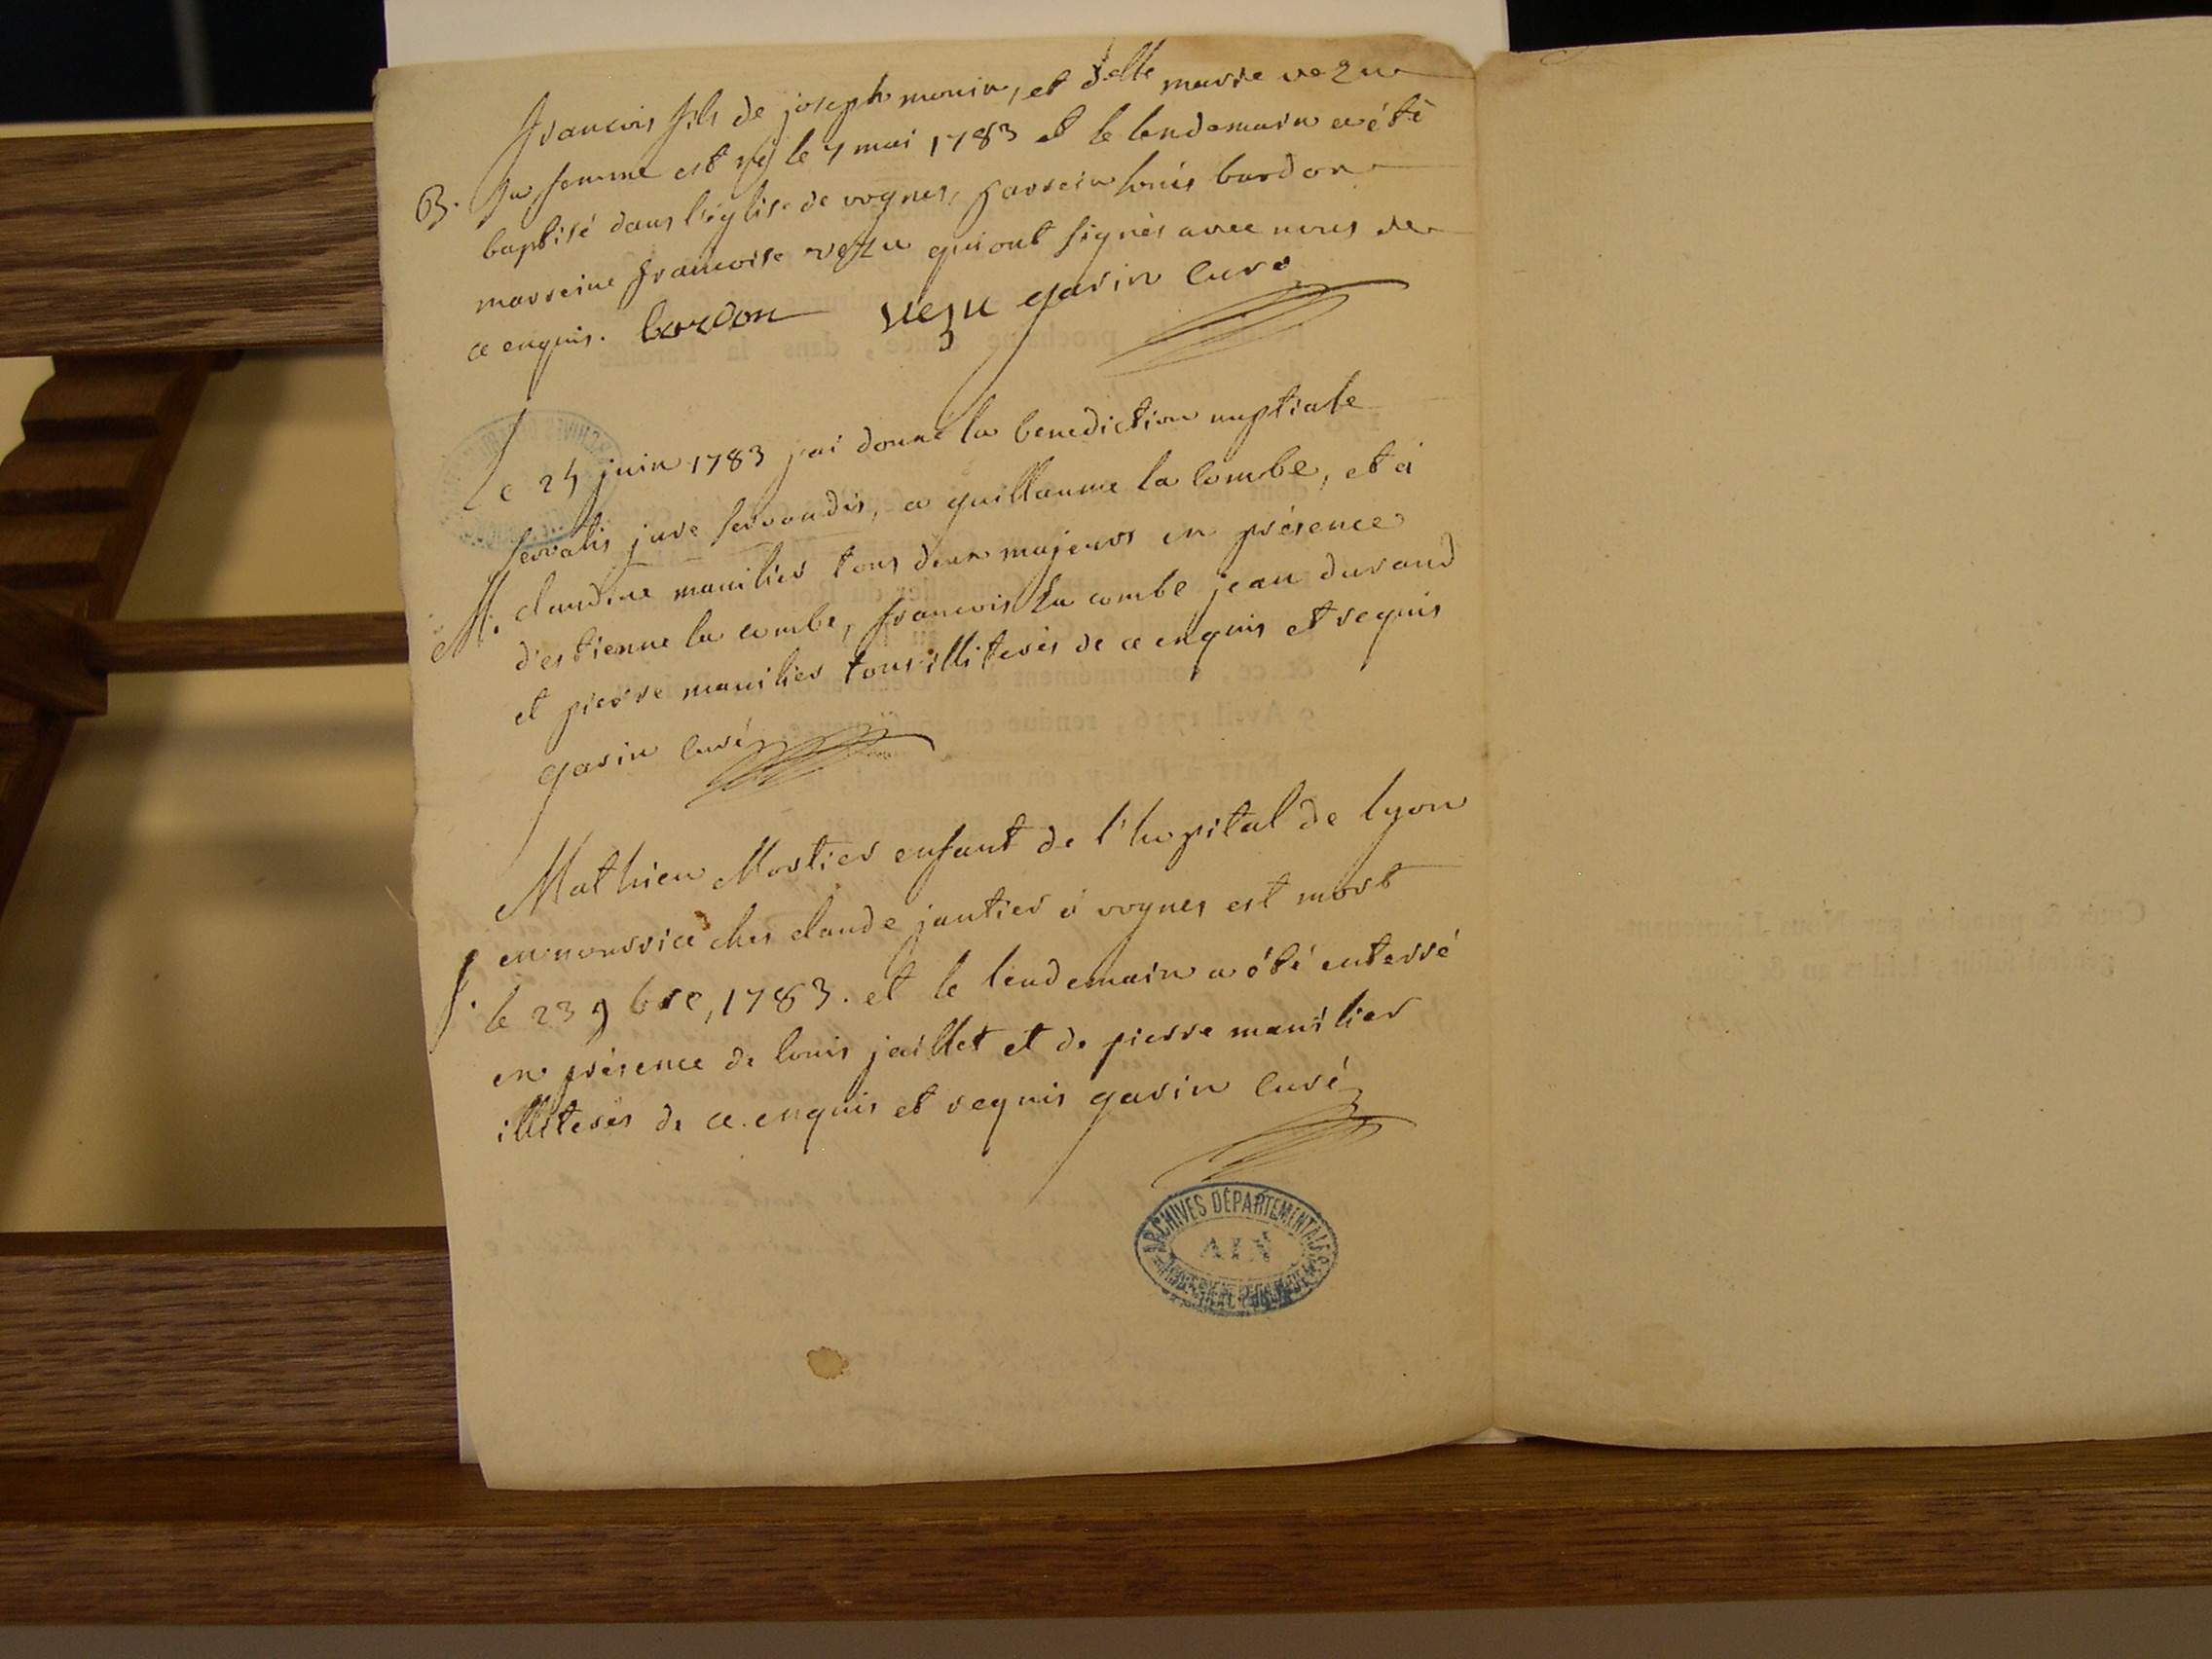 francois fils de joseph monin, et delle marie vezu
B. sa femme est né le 7 mai 1783 et le lendemain a été
baptisé dans l'église de vognes, parrein louis bardon
marreine francoise vezu qui ont signés avec nous de
ce enquis. bardon vezu garin curé
Le 24 juin 1783 jai donné la benediction nuptiale
servatis jure servandis, a guillaume la combe, et a
M. claudine manilier tous deux majeurs en présence
d'estienne la combe, francois la combe jean durand
et pierre manilier tous illiterés de ce enquis et requis
garin curé
Mathieu Mortier enfant de l'hopital de lyon
en nourrice ches claude jantier à vognes est mort
S. le 23 9bre, 1783. et le lendemain a été enterré
en présence de louis jaillet et de pierre manilier
illiterés de ce enquis et requis garin curé
ARCHIVES DÉPARTEMENTALES
AIN